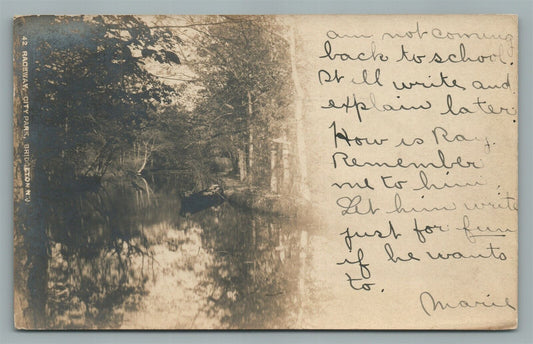 42 RACEWAY, CITY PARK, BRIDGETON N.J.
am not coming
back to school.
Will write and
explain later.
How is Ray.
Remember
me to him.
Let him write
just for fun
if he wants
to.
Marie